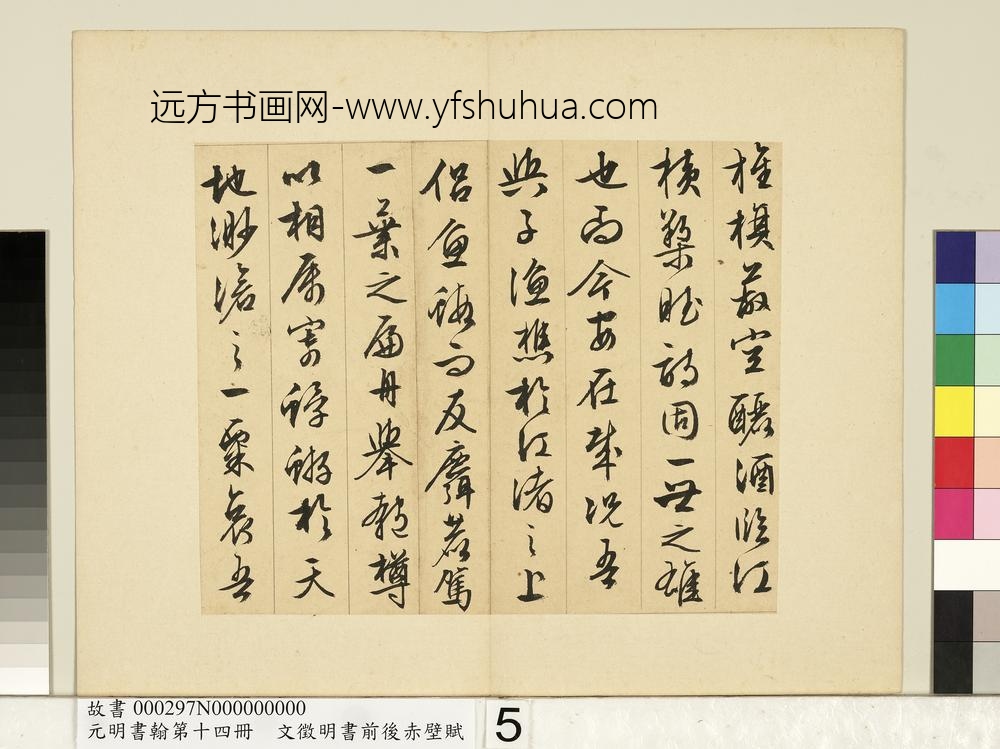 远方书画网-www.yfshuhua.com
旌旗蔽空釃酒臨江
横槊賦詩固一世之雄
也而今安在哉況吾
與子漁樵於江渚之上
侣魚蝦而友麋鹿駕
一葉之扁舟舉匏樽
以相属寄蜉蝣於天
地渺滄之一粟哀吾
故書 000297N000000000
元明書翰第十四冊 文徵明書前後赤壁賦
5